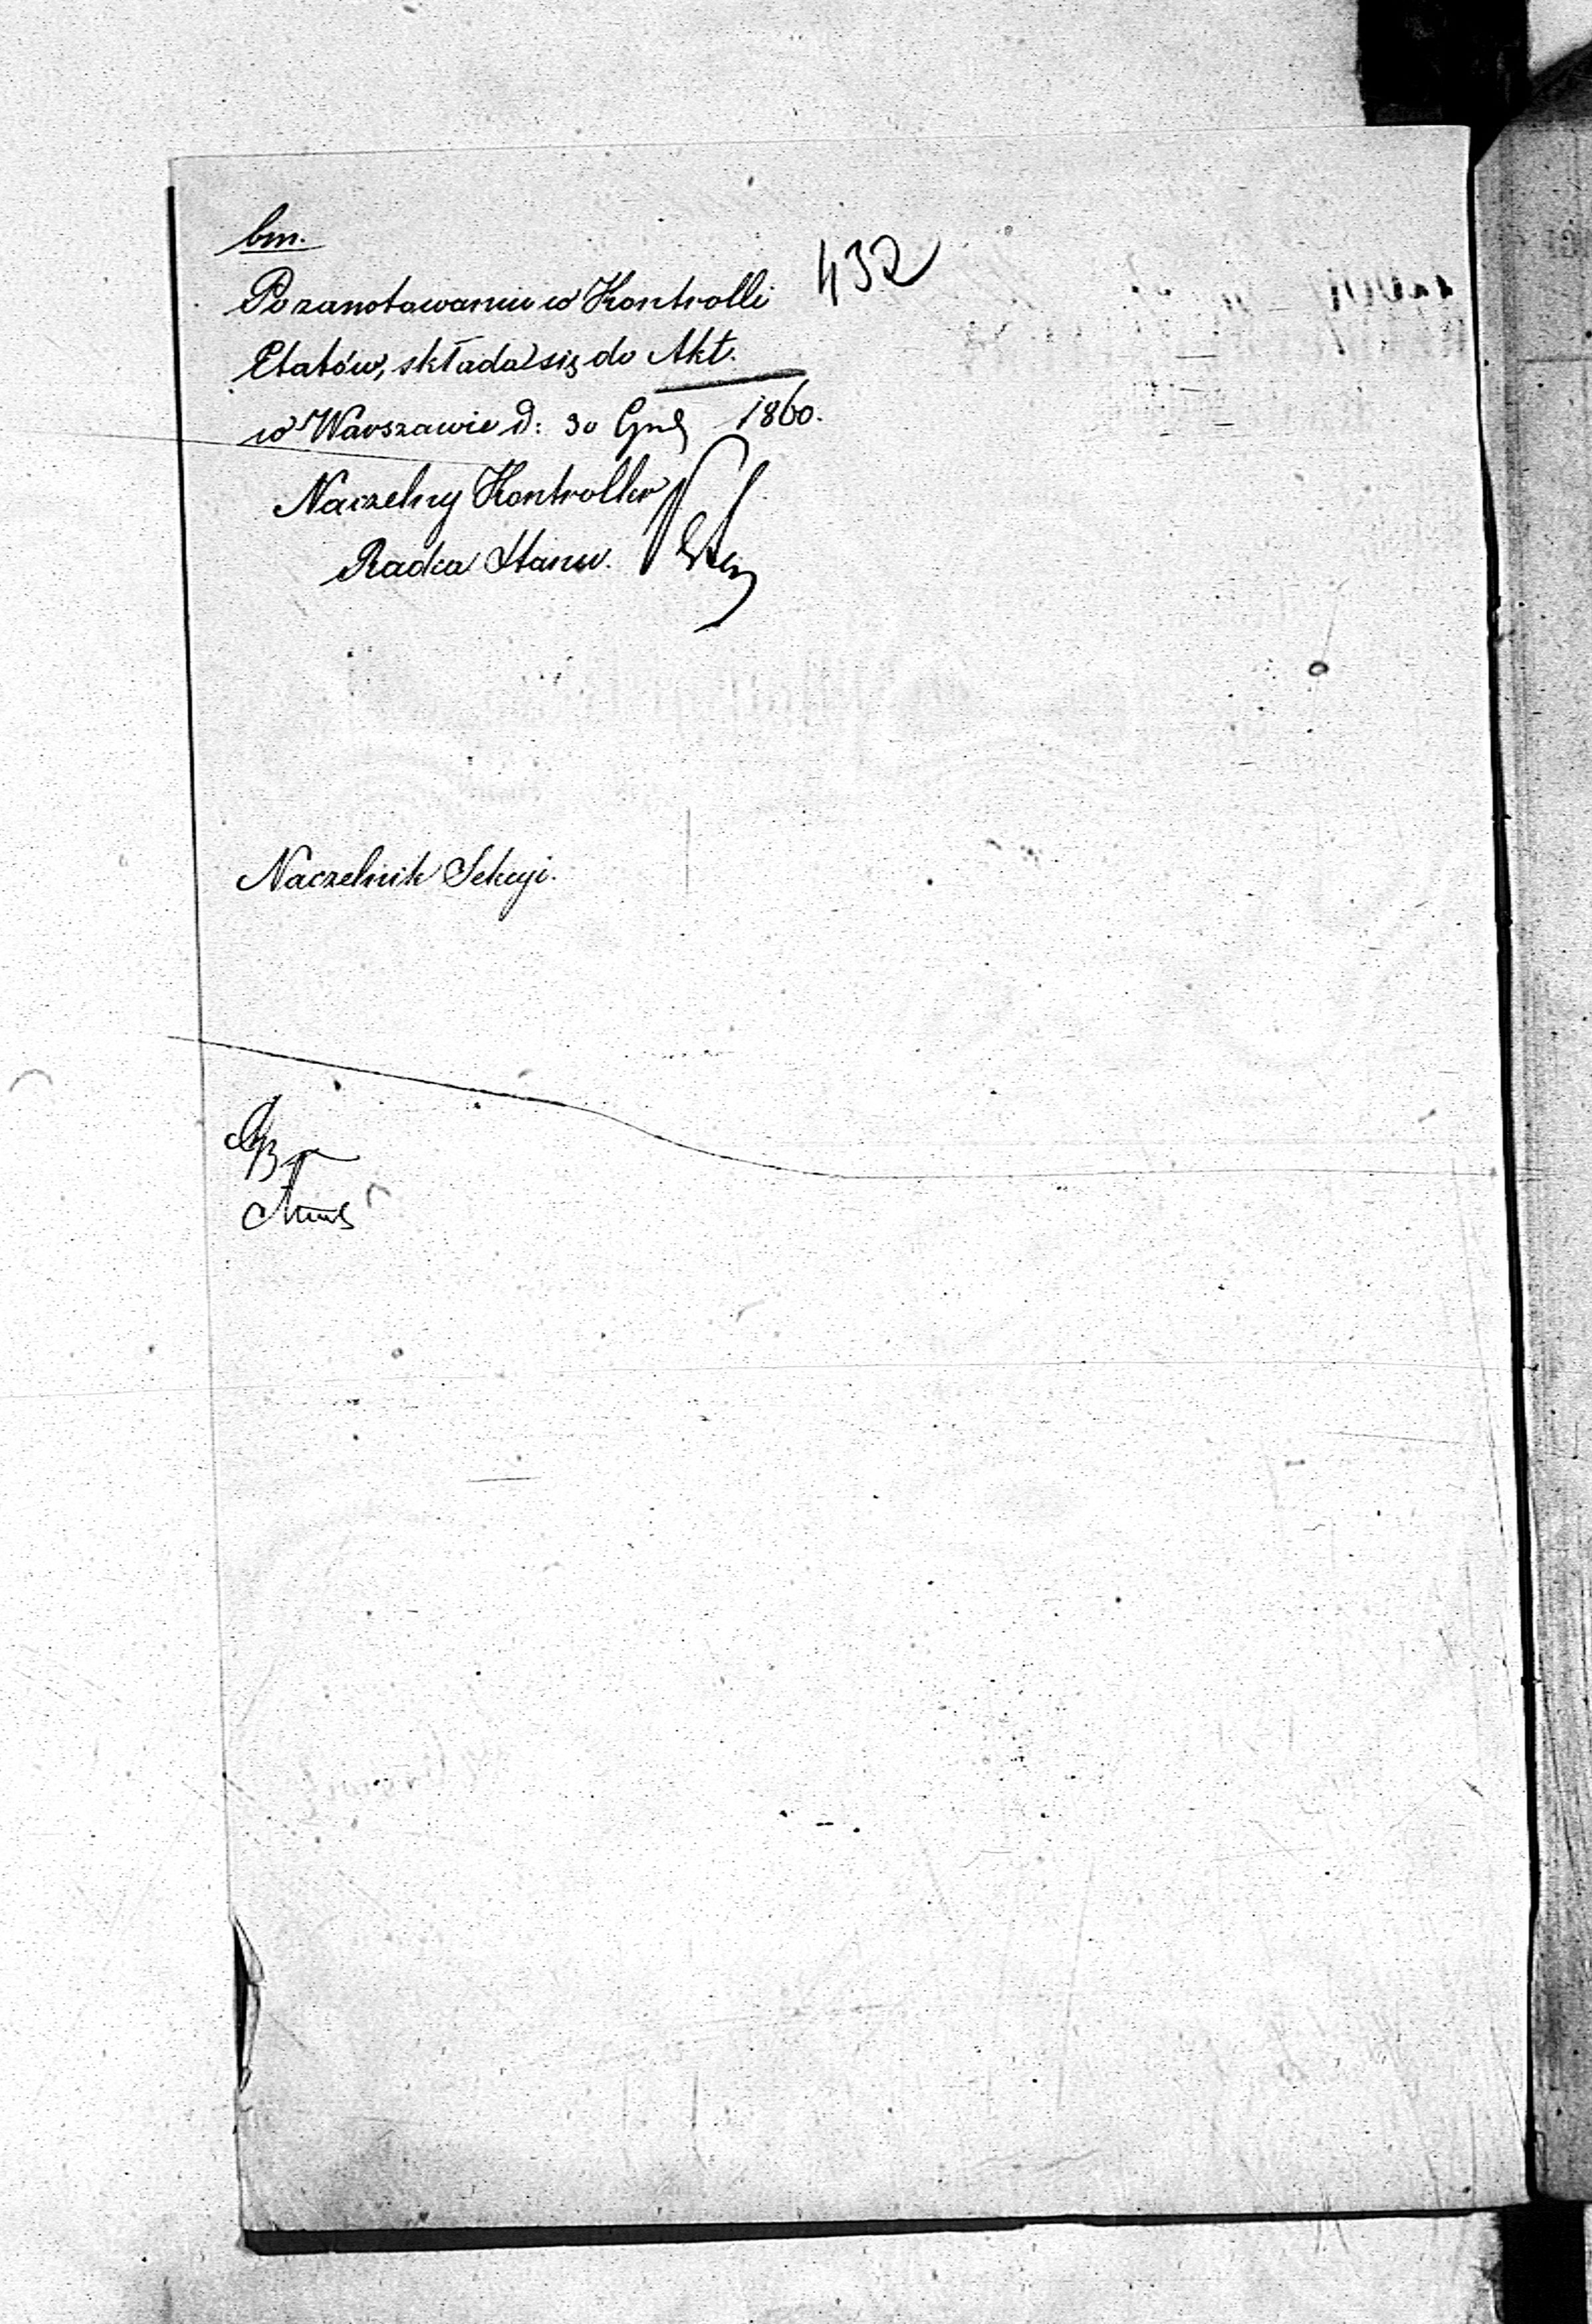 bm.
432
Po zanotowaniu w Kontrolli
Etatów, składa się do Akt.
w Warszawie d: 30 Grud 1860.
Naczelny Kontroller
Radca Stanu.
Naczelnik Sekcyi.